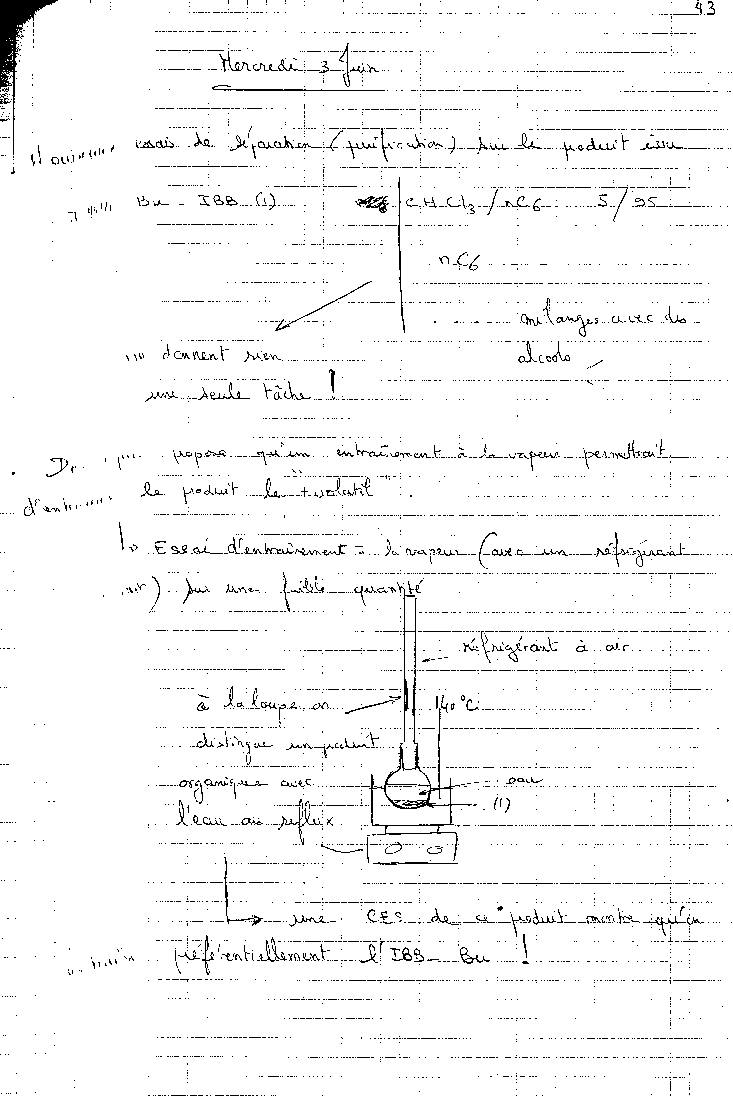 43
Mercredi 3 Juin
essais de séparation (purification) sur le produit issu
Bu - IBB (1) CHCl3/nC6 5/95
nC6
mélanges avec des
alcools
donnent rien
une seule tâche !
propose qu'un entraînement à la vapeur permettrait
le produit le + volatil.
Essai d'entraînement à la vapeur (avec un réfrigérant
) sur une faible quantité
réfrigérant à air
à la loupe on
140°C
distingue un produit
organique avec
eau
(1)
l'eau au reflux
une CES de ce "produit montre qu'on
préférentiellement l'IBB-Bu !